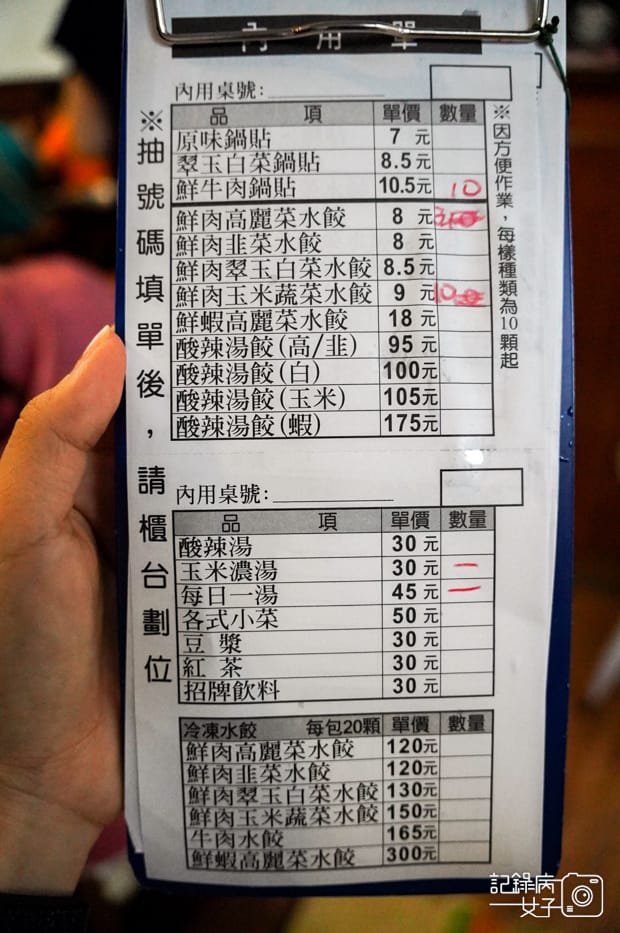 內用單
內用桌號:
品項 單價 數量
原味鍋貼 7元
翠玉白菜鍋貼 8.5元
鮮牛肉鍋貼 10.5元 10
鮮肉高麗菜水餃 8元
鮮肉韭菜水餃 8元
鮮肉翠玉白菜水餃 8.5元
鮮肉玉米蔬菜水餃 9元 10
鮮蝦高麗菜水餃 18元
酸辣湯餃(高/韭) 95元
酸辣湯餃(白) 100元
酸辣湯餃(玉米) 105元
酸辣湯餃(蝦) 175元
※因方便作業，每樣種類為10顆起
※抽號碼填單後，請櫃台劃位
內用桌號:
品項 單價 數量
酸辣湯 30元
玉米濃湯 30元 一
每日一湯 45元 一
各式小菜 50元
豆漿 30元
紅茶 30元
招牌飲料 30元
冷凍水餃 每包20顆 單價 數量
鮮肉高麗菜水餃 120元
鮮肉韭菜水餃 120元
鮮肉翠玉白菜水餃 130元
鮮肉玉米蔬菜水餃 150元
牛肉水餃 165元
鮮蝦高麗菜水餃 300元
記錄病
一女子